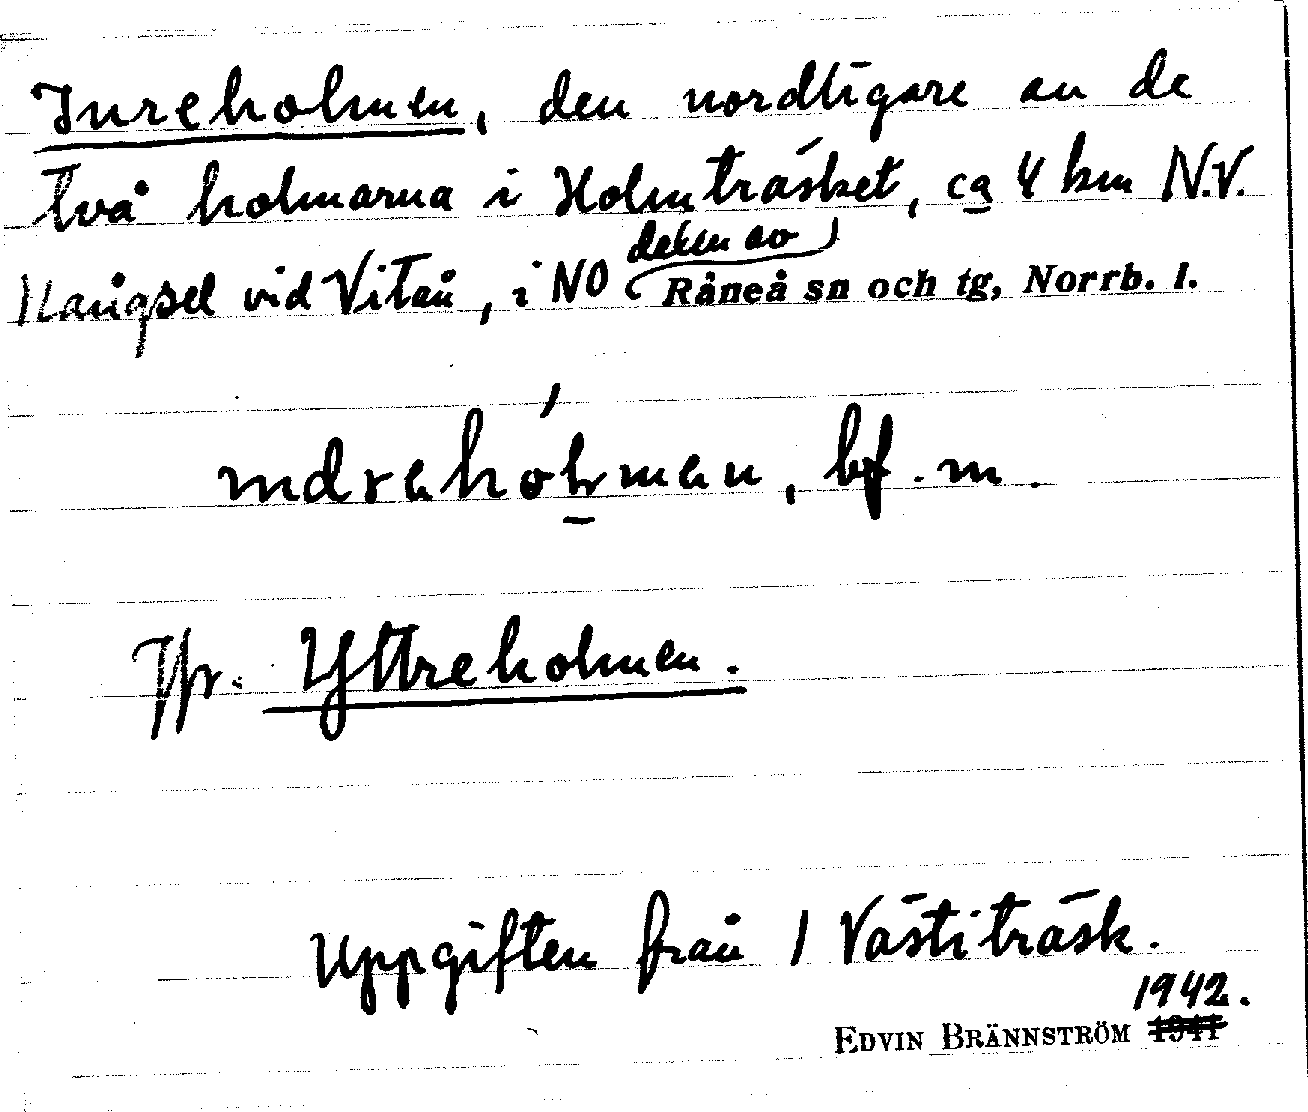 Inreholmen, den nordligare av de
två holmarna i Holmträsket, ca 4 km N.V.
Långsel vid Vitån, i NO delen av Råneå sn och tg, Norrb. l.
bf. m.
Jfr. Yttreholmen.
Uppgiften från 1 Västiträsk.
1942.
EDVIN BRÄNNSTRÖM 1941